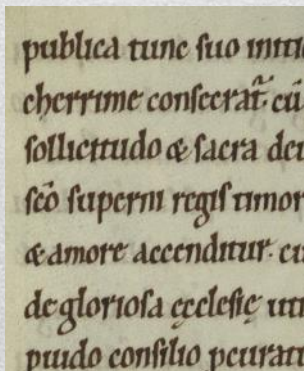 publica tunc suo initi
cherrime consecrat̃. cū
sollicitudo & sacra deu
sc̄o superni regis timor
& amore accenditur. cu
de gloriosa ęcclesię uti
puido consilio pcurat